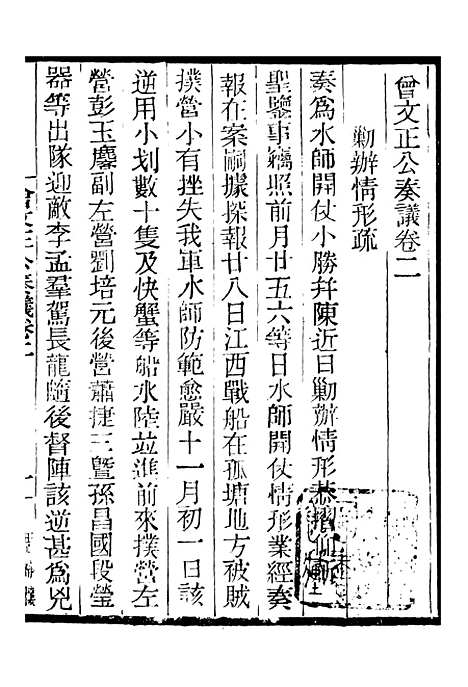 曾文正公奏議卷二
勦辦情形疏
奏爲水師開仗小勝幷陳近日勦辦情形恭摺仰祈
聖鑒事竊照前月廿五六等日水師開仗情形業經奏
報在案嗣據探報廿八日江西戰船在孤塘地方被賊
撲營小有挫失我軍水師防範愈嚴十一月初一日該
逆用小划數十隻及快蟹等船水陸並進前來撲營左
營彭玉麐副左營劉培元後營蕭捷三曁孫昌國段瑩
器等出隊迎敵李孟羣駕長龍隨後督陣該逆甚爲兇